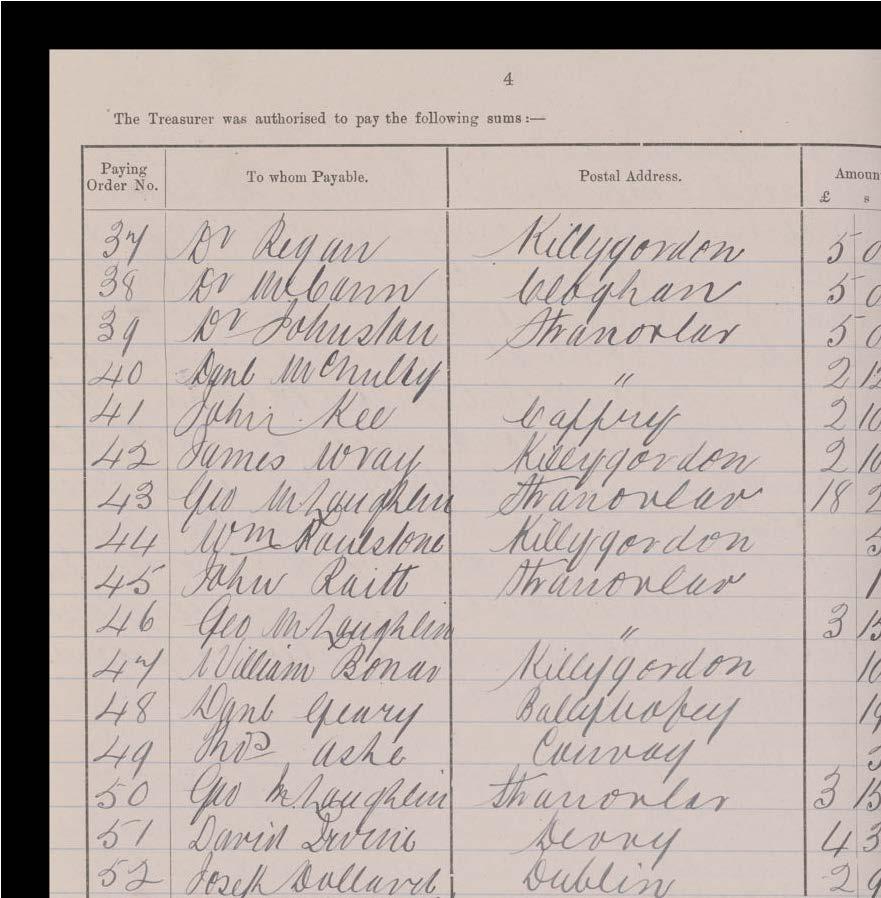 4
The Treasurer was authorised to pay the following sums :—
Paying Order No. To whom Payable. Postal Address. Amoun
£ s
37 Dr Regan Killygordon 5 0
38 Dr McCann Cloghan 5 0
39 Dr Johnston Stranorlar 5 0
40 Danl McNulty " 2 12
41 John Kee Cappry 2 10
42 James Wray Killygordon 2 10
43 Geo McLaughlin Stranorlar 18 2
44 Wm Roulstone Killygordon
45 John Raitt Stranorlar 1
46 Geo McLaughlin " 3 15
47 William Bonar Killygordon 10
48 Danl Geary Ballybofey 19
49 Thos Ashe Convoy
50 Geo McLaughlin Stranorlar 3 15
51 David Irvine Derry 4 3
52 Joseph Dollard Dublin 2 9